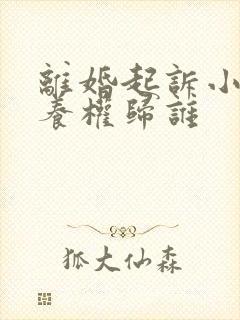 離婚起訴小
養權歸誰
狐大仙森